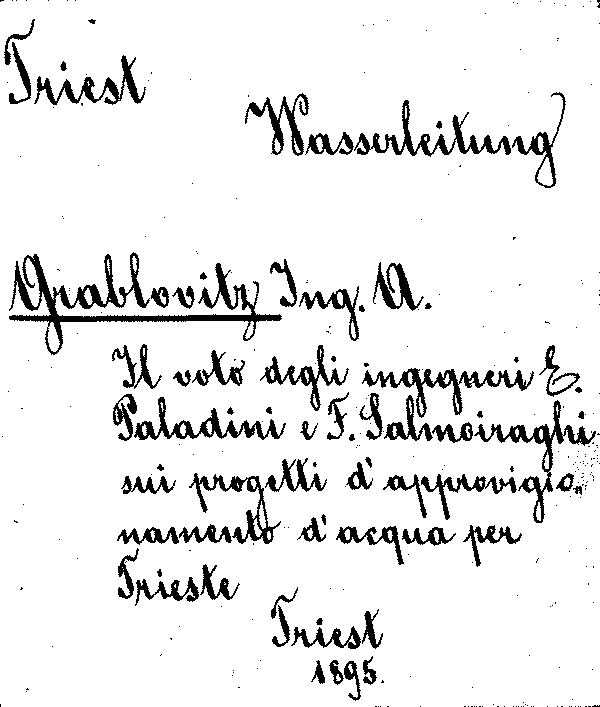 Triest
Wasserleitung
Grablovitz Ing. A.
Il voto degli ingegneri E.
Paladini e F. Salmoiraghi
sui progetti d'approvigio-
namento d'acqua per
Trieste
Triest
1895.